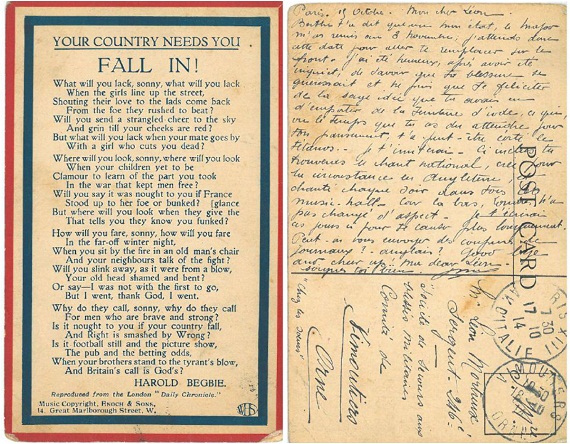 YOUR COUNTRY NEEDS YOU
FALL IN!
What will you lack, sonny, what will you lack
When the girls line up the street,
Shouting their love to the lads come back
From the foe they rushed to beat?
Will you send a strangled cheer to the sky
And grin till your cheeks are red?
But what will you lack when your mate goes by
With a girl who cuts you dead?
Where will you look, sonny, where will you look
When your children yet to be
Clamour to learn of the part you took
In the war that kept men free?
Will you say it was nought to you if France
Stood up to her foe or bunked? [glance
But where will you look when they give the
That tells you they know you funked?
How will you fare, sonny, how will you fare
In the far-off winter night,
When you sit by the fire in an old man's chair
And your neighbours talk of the fight?
Will you slink away, as it were from a blow,
Your old head shamed and bent?
Or say—I was not with the first to go,
But I went, thank God, I went.
Why do they call, sonny, why do they call
For men who are brave and strong?
Is it nought to you if your country fall,
And Right is smashed by Wrong?
Is it football still and the picture show,
The pub and the betting odds,
When your brothers stand to the tyrant's blow,
And Britain's call is God's?
HAROLD BEGBIE.
Reproduced from the London "Daily Chronicle."
Music Copyright, ENOCH & SONS,
14, Great Marlborough Street, W.
Paris, Octobre. Mon cher Léon
Berthe t'a dit que mon état, le major
m'a remis au 8 Novembre, j'attends donc
cette date pour aller te remplacer sur le
front. J'ai été heureux, après avoir été
inquiet, de savoir que ta blessure se
guérissait et je puis que te féliciter
de la sage idée que tu avais eu
d'emporter de la teinture d'iode, ce qui,
vu le temps que tu as du attendre pour
ton pansement, t'a peut-être évité le
tétanos. Ci inclus tu
trouveras le chant national, créé pour
la circonstance en Angleterre,
chanté chaque soir dans tous les
music-hall.
pas changé d'aspect. Je t'écrirai
ces jours ci pour te causer plus longuement.
Peut-on vous envoyer des coupures de
journaux? anglais? Good bye
and cheer up, my dear Léon
POST CARD
Mr Léon
Sergent
Société de secours aux
blessés militaires
Comité de
Vimoutiers
Orne
PARIS XIII
17 30
14
PL. D'ITALIE
VIMOUTIERS
ORNE